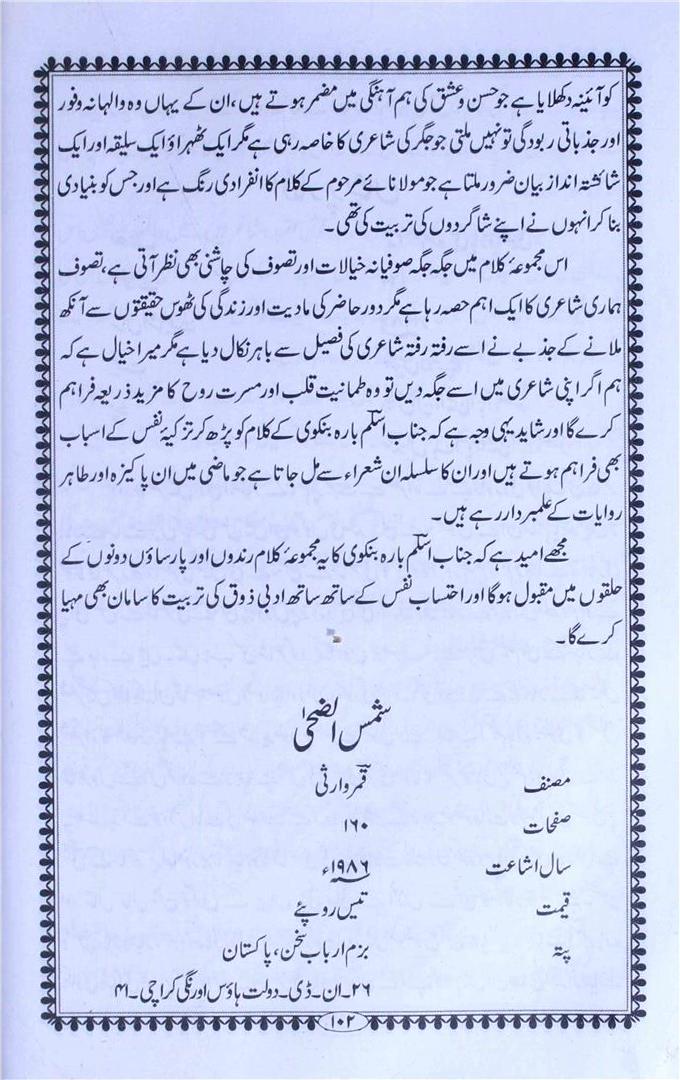 کو آئینہ دکھلایا ہے جو حسن و عشق کی ہم آہنگی میں مضمر ہوتے ہیں، ان کے یہاں وہ والہانہ وفور
اور جذباتی ربودگی تو نہیں ملتی جو جگر کی شاعری کا خاصہ رہی ہے مگر ایک ٹھہراؤ ایک سلیقہ اور ایک
شائشتہ انداز بیان ضرور ملتا ہے جو مولانائے مرحوم کے کلام کا انفرادی رنگ ہے اور جس کو بنیادی
بنا کر انہوں نے اپنے شاگردوں کی تربیت کی تھی۔
اس مجموعۂ کلام میں جگہ جگہ صوفیانہ خیالات اور تصوف کی چاشنی بھی نظر آتی ہے، تصوف
ہماری شاعری کا ایک اہم حصہ رہا ہے مگر دور حاضر کی مادیت اور زندگی کی ٹھوس حقیقتوں سے آنکھ
ملانے کے جذبے نے اسے رفتہ رفتہ شاعری کی فصیل سے باہر نکال دیا ہے مگر میرا خیال ہے کہ
ہم اگر اپنی شاعری میں اسے جگہ دیں تو وہ طمانیت قلب اور مسرت روح کا مزید ذریعہ فراہم
کرے گا اور شاید یہی وجہ ہے کہ جناب اسلم بارہ بنکوی کے کلام کو پڑھ کر تزکیۂ نفس کے اسباب
بھی فراہم ہوتے ہیں اور ان کا سلسلہ ان شعراء سے مل جاتا ہے جو ماضی میں ان پاکیزہ اور طاہر
روایات کے علمبردار رہے ہیں۔
مجھے امید ہے کہ جناب اسلم بارہ بنکوی کا یہ مجموعۂ کلام رندوں اور پارساؤں دونوں کے
حلقوں میں مقبول ہوگا اور احتساب نفس کے ساتھ ساتھ ادبی ذوق کی تربیت کا سامان بھی مہیا
کرے گا۔
شمس الضحیٰ
مصنف قمر وارثی
صفحات ۱۶۰
سال اشاعت ۱۹۸۶ء
قیمت تیس روپئے
پتہ بزم ارباب سخن، پاکستان
۲۶۔ان۔ڈی۔دولت ہاؤس اورنگی کراچی۔۴۱
۱۰۲